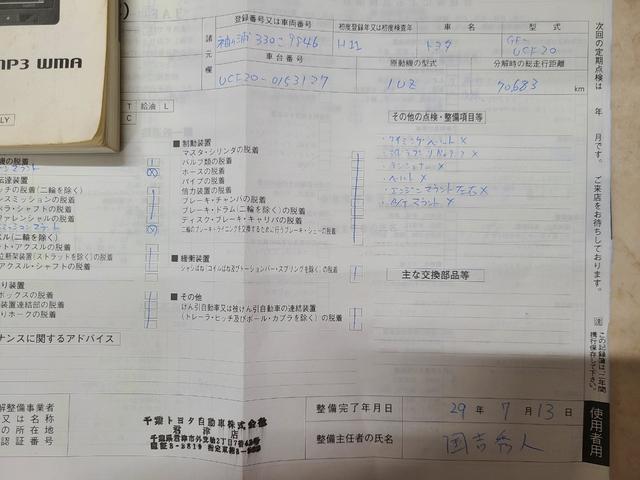 MP3 WMA
諸元欄
登録番号又は車両番号
初度登録年又は初度検査年
車 名
型 式
袖ヶ浦 330 の 9546
H11
トヨタ
GF-
UCF20
車台番号
原動機の型式
分解時の総走行距離
UCF20-0153127
1UZ
70683
km
T 給油 L
その他の点検・整備項目等
・タイミングベルト ×
・テンショナー ×
・ベルト ×
・エンジンマウント左右 ×
マウント ×
■ 制動装置
マスタ・シリンダの脱着
バルブ類の脱着
ホースの脱着
パイプの脱着
倍力装置の脱着
ブレーキ・チャンバの脱着
ブレーキ・ドラム(二輪を除く)の脱着
ディスク・ブレーキ・キャリパの脱着
二輪のブレーキ・ライニングを交換するために行うブレーキ・シューの脱着
■ 緩衝装置
シャシばね(コイルばね及びトーションバー・スプリングを除く)の脱着
■ その他
けん引自動車又は被けん引自動車の連結装置
(トレーラ・ヒッチ及びボール・カプラを除く)の脱着
機の脱着
伝達装置
ッチの脱着(二輪を除く)
ンスミッションの脱着
ペラ・シャフトの脱着
ファレンシャルの脱着
ミッションマウント
ト・アクスルの脱着
立懸架装置(ストラットを除く)の脱着
アクスル・シャフトの脱着
り装置
ボックスの脱着
装置連結部の脱着
りホークの脱着
主な交換部品等
ナンスに関するアドバイス
解整備事業者
又は名称
の所在地
認証番号
千葉トヨタ自動車株式会社
君津店
整備完了年月日
29 年 7 月 13 日
整備主任者の氏名
国吉秀人
次回の定期点検は 年 月です。 ご来店をお待ちしております。
この記録簿は二年間
携行保存して下さい。
使用者用